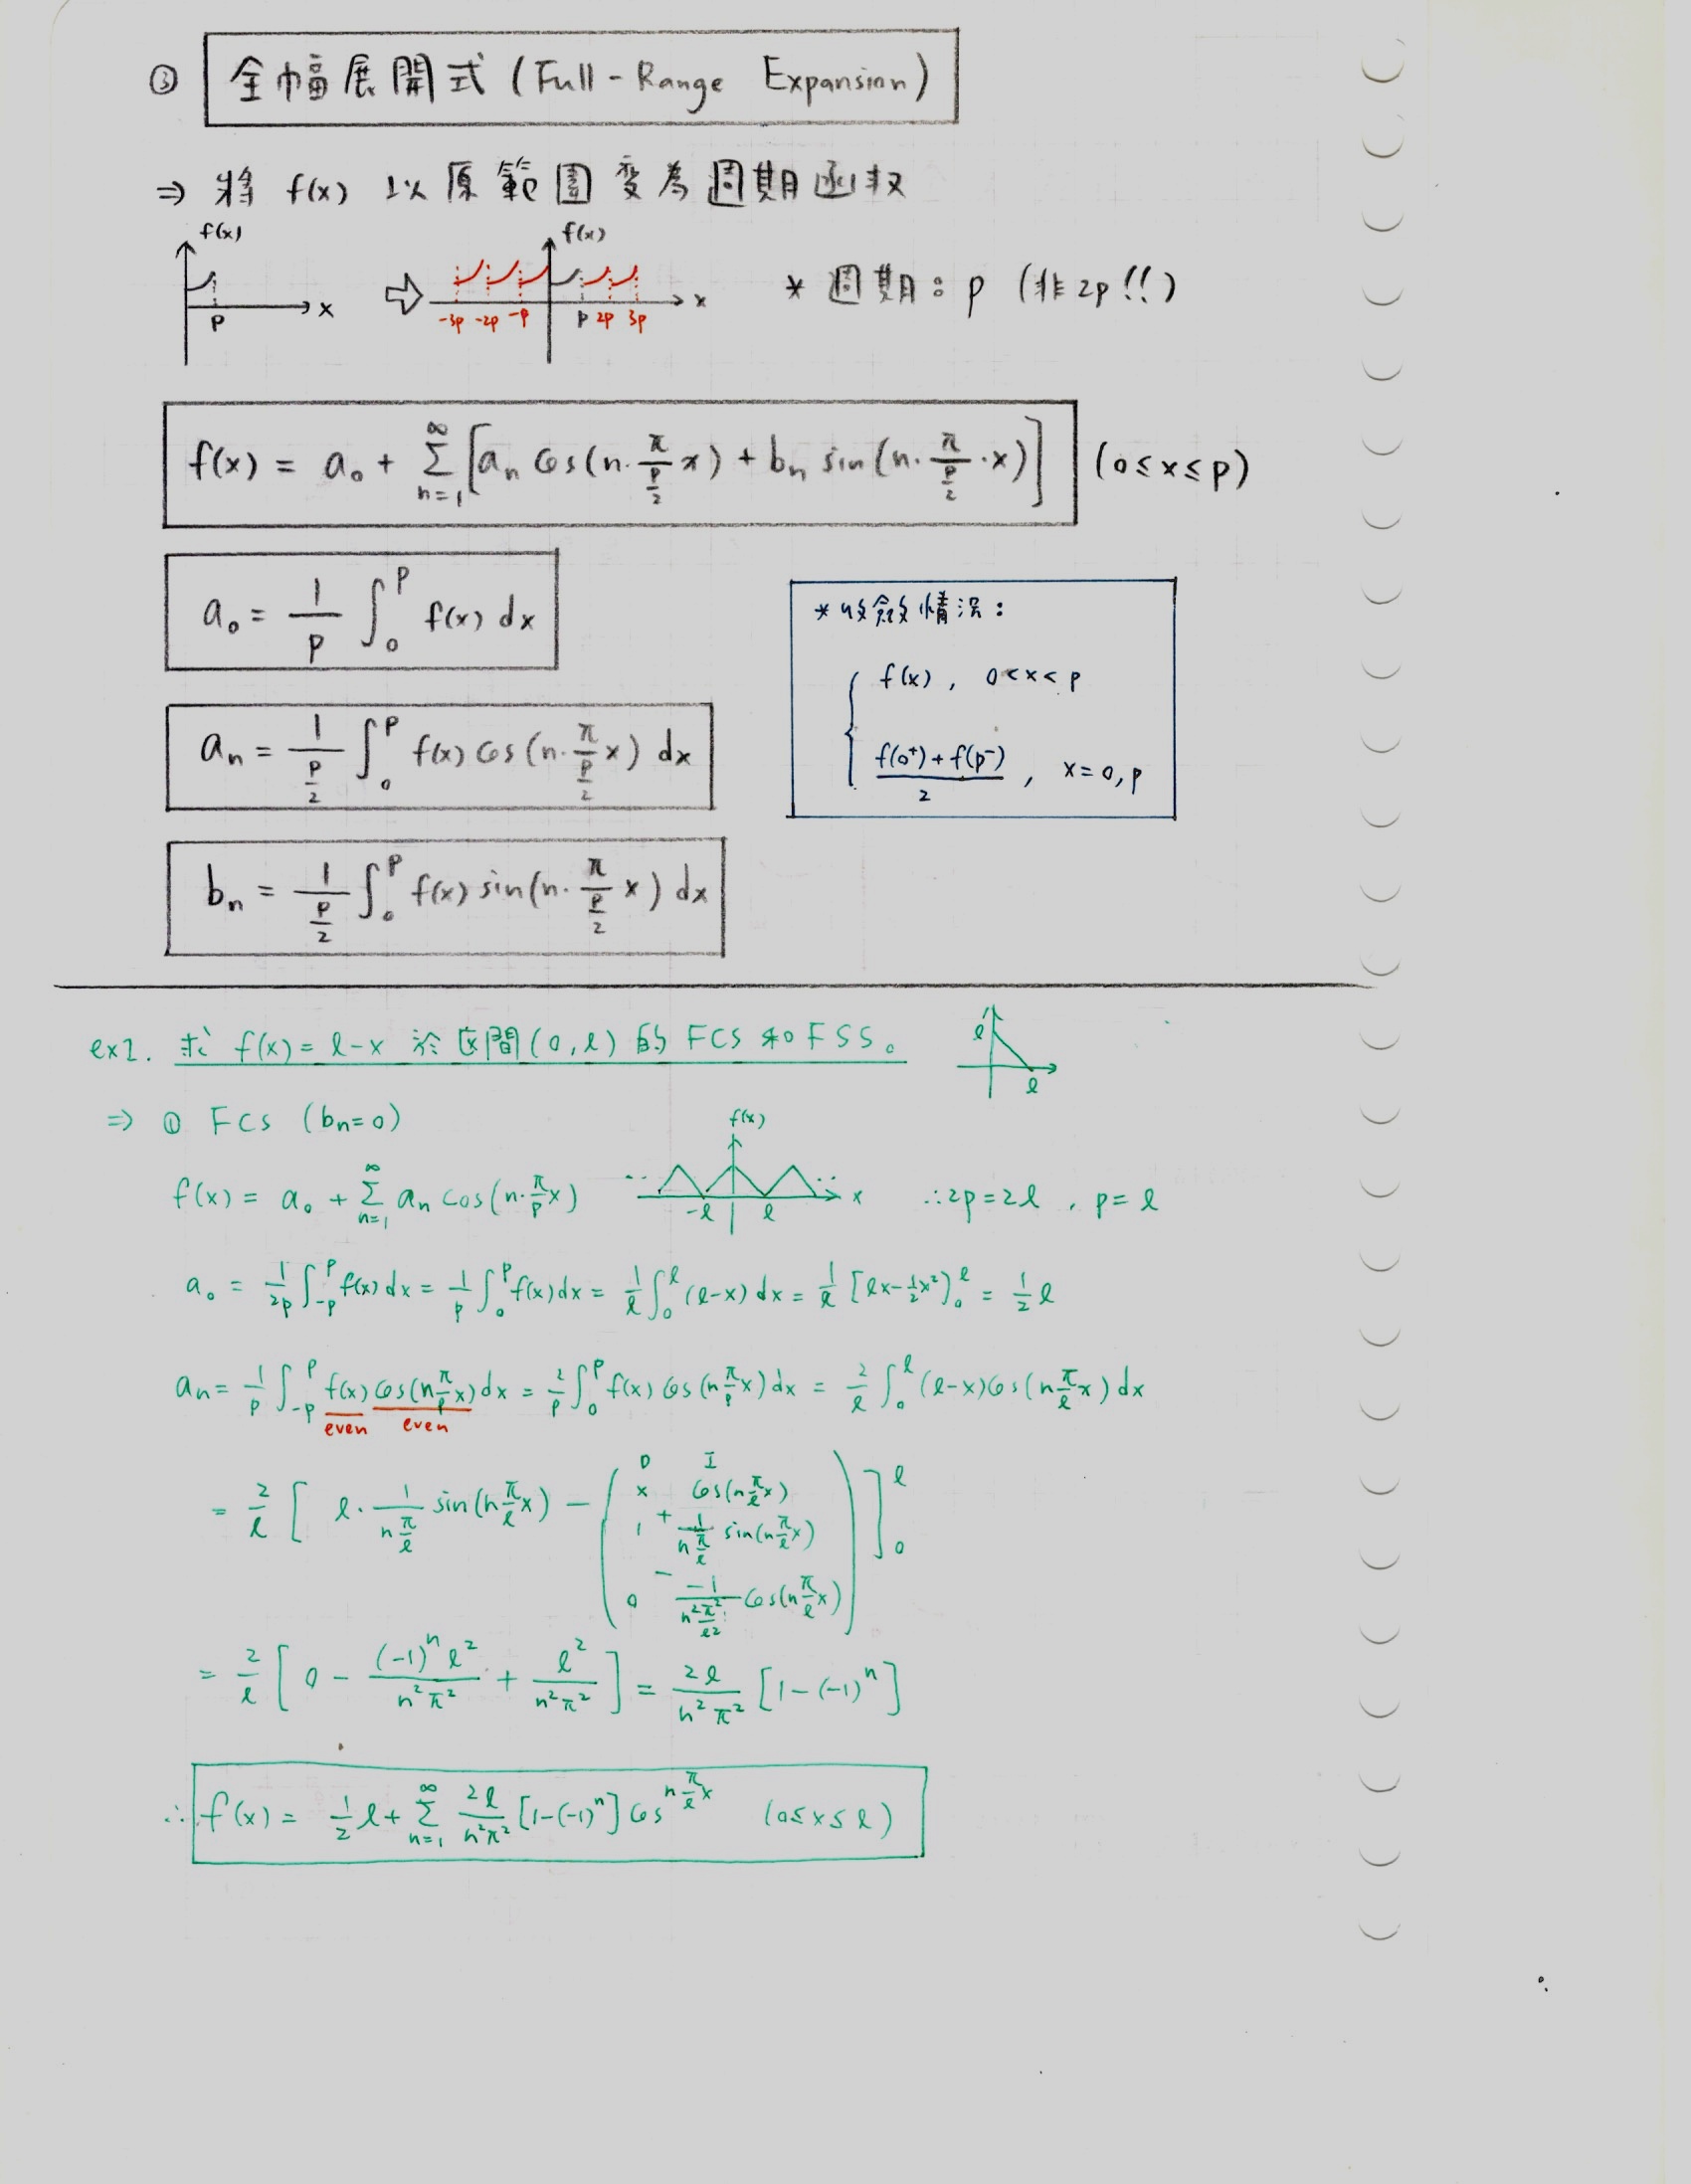 ③ 全幅展開式 (Full-Range Expansion)
⇒ 將 f(x) 以原範圍变為週期函数
f(x) f(x)
p x ⇨ -3p -2p -p p 2p 3p x * 週期:p (非2p!!)
f(x) = a₀ + Σ_{n=1}^{∞} [aₙ cos(n·π/(p/2) x) + bₙ sin(n·π/(p/2)·x)] (0≤x≤p)
a₀ = 1/p ∫₀^p f(x) dx
aₙ = 1/(p/2) ∫₀^p f(x) cos(n·π/(p/2) x) dx
bₙ = 1/(p/2) ∫₀^p f(x) sin(n·π/(p/2) x) dx
* 收斂情況:
{ f(x), 0<x<p
(f(0⁺)+f(p⁻))/2, x=0,p
ex2. 求 f(x)=ℓ-x 於区間(0,ℓ) 的 FCS 和 FSS。
ℓ ℓ
⇒ ① FCS (bₙ=0)
f(x)
f(x) = a₀ + Σ_{n=1}^{∞} aₙ cos(n·π/p x) ·· -ℓ ℓ ·· x ∴2p=2ℓ , p=ℓ
a₀ = 1/2p ∫_{-p}^{p} f(x) dx = 1/p ∫₀^p f(x) dx = 1/ℓ ∫₀^ℓ (ℓ-x) dx = 1/ℓ [ℓx-½x²]₀^ℓ = ½ ℓ
aₙ = 1/p ∫_{-p}^{p} f(x) cos(n π/p x) dx = 2/p ∫₀^p f(x) cos(n π/p x) dx = 2/ℓ ∫₀^ℓ (ℓ-x) cos(n π/ℓ x) dx
even even
= 2/ℓ [ ℓ· 1/(n π/ℓ) sin(n π/ℓ x) - (
D I
x cos(n π/ℓ x)
1 + 1/(n π/ℓ) sin(n π/ℓ x)
0 - -1/(n² π²/ℓ²) cos(n π/ℓ x) ) ]₀^ℓ
= 2/ℓ [ 0 - (-1)ⁿℓ²/(n²π²) + ℓ²/(n²π²) ] = 2ℓ/(n²π²) [1-(-1)ⁿ]
∴ f(x) = ½ ℓ + Σ_{n=1}^{∞} 2ℓ/(n²π²) [1-(-1)ⁿ] cos n π/ℓ x (0≤x≤ℓ)